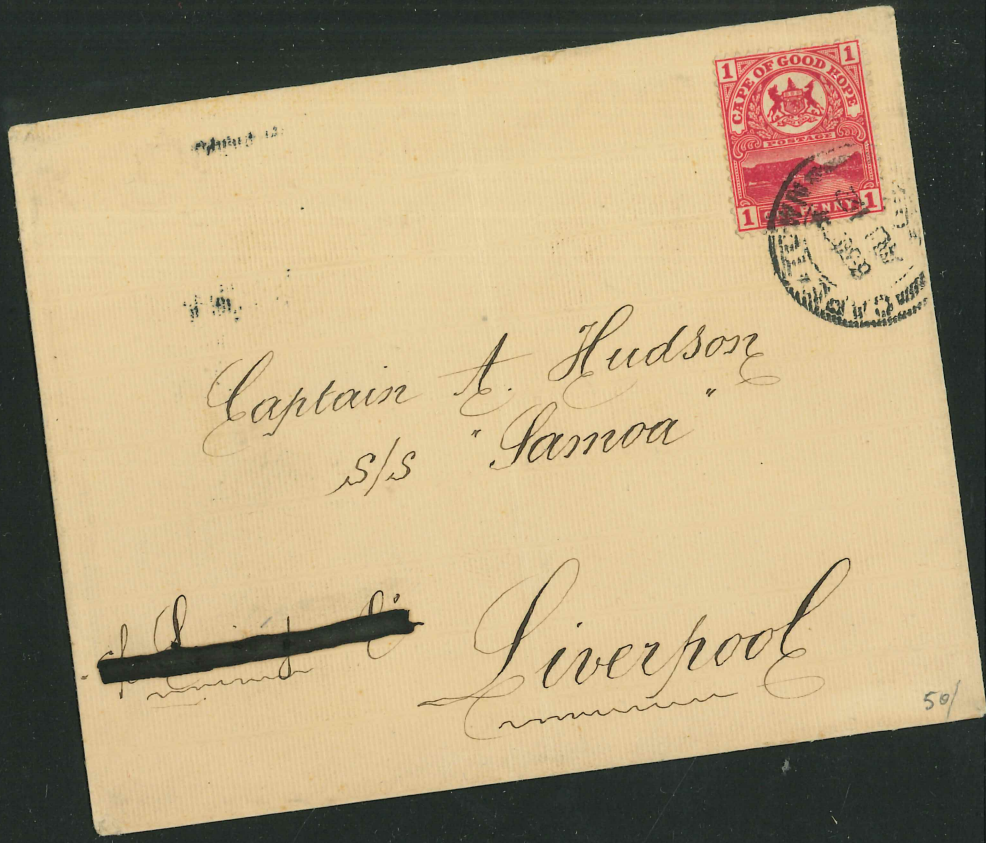 1 1
CAPE OF GOOD HOPE
POSTAGE
1 PENNY 1
CAPE TOWN
Captain A. Hudson
s/s "Samoa"
Liverpool
50/